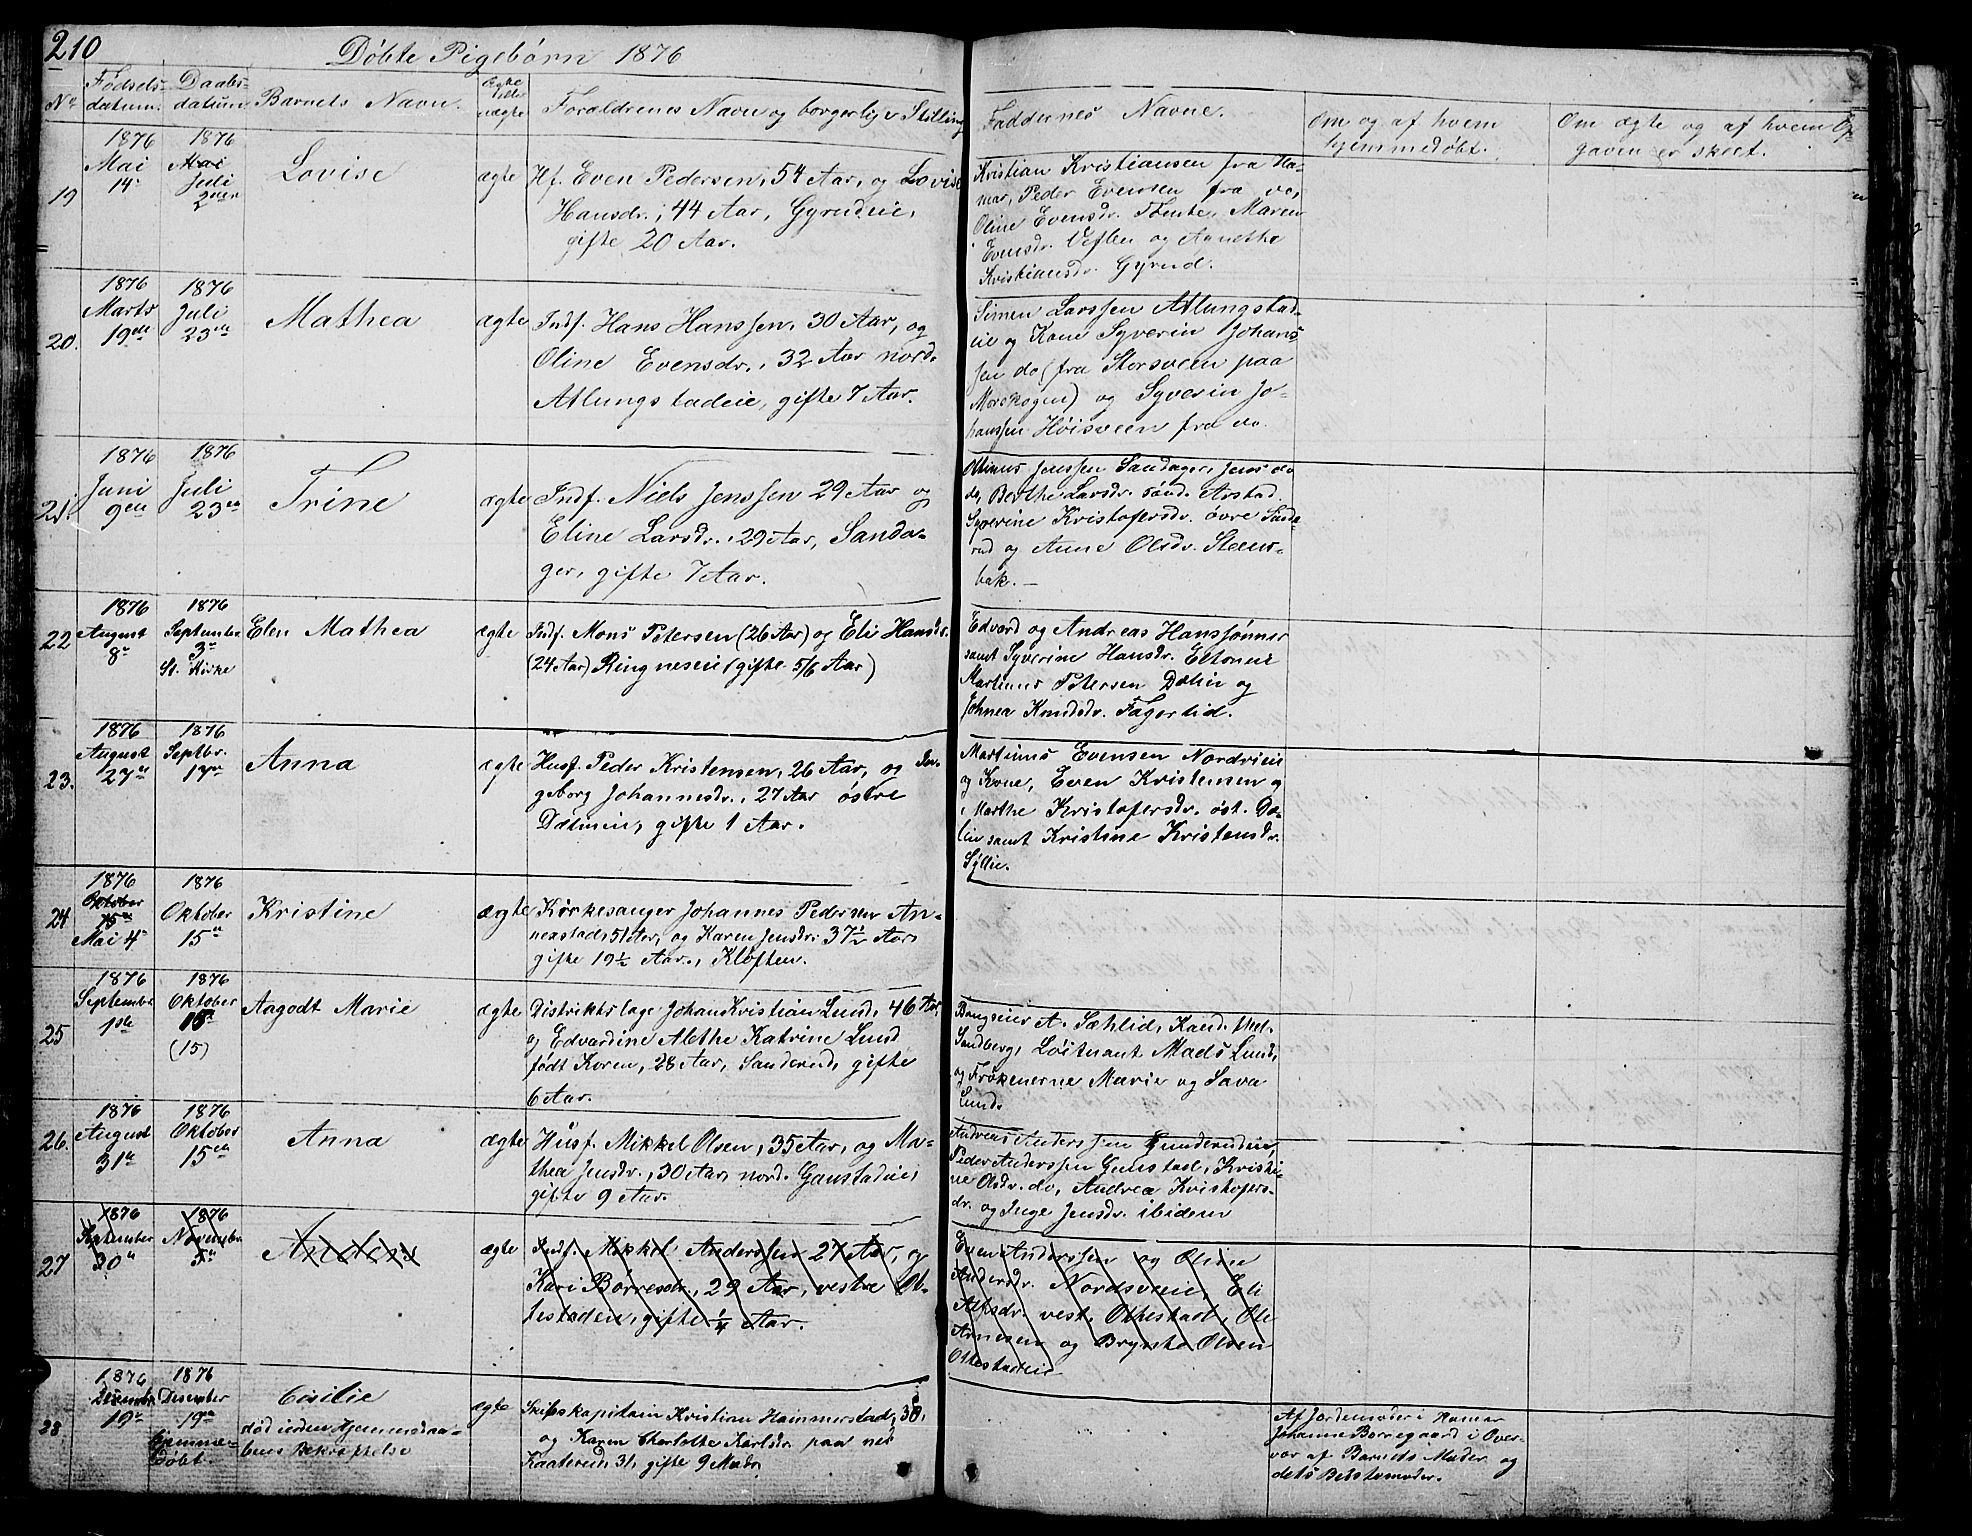 210
Döbte Pigebörn 1876
No
Fødsels-
datum.
Daabs-
datum
Barnets Navn.
Ægte
eller
uægte
Forældrenes Navn og borgerlige Stilling
Faddernes Navne.
Om og af hvem
hjemmedøbt.
Om ægte og af hvem Op-
gaven er skeet.
19
1876
Mai
14
1876
Mai
Juli
2den
Lovise
ægte
Hf. Even Pedersen, 54 Aar, og Lovise
Hansdr., 44 Aar, Gyrudeie,
gifte 20 Aar.
Kristian Kristiansen fra Ha-
mar, Peder Evensen fra do,
Oline Evensdr. Tomte, Maren
Evensdr. Veflen og Agnethe
Kristiansdr. Gyrud.
20.
1876
Marts
19de
1876
Juli
23de
Mathea
ægte
Indf. Hans Hanssen, 30 Aar, og
Oline Evensdr., 32 Aar nord.
Atlungstadeie, gifte 7 Aar.
Simen Larssen Atlungstad-
eie og Kone Syverin Johans-
sen do (fra Storsveen paa
Moreskogen) og Syverin Jo-
hanssen Höisveen fra do.
21.
1876
Juni
9de
1876
Juli
23de
Trine
ægte
Indf. Niels Jenssen 29 Aar og
Eline Larsdr., 29 Aar, Sanda-
ger, gifte 7 Aar.
Ottinus Jenssen Sandager, Jens do
do, Berthe Larsdr. sönd. Arstad.
Syverine Kristofersdr. övre Sande-
rud og Anne Olsdr. Steens-
bak. —
22
1876
August
8de
1876
September
3de
St. Kirke
Elen Mathea
ægte
Indf. Mons Petersen (26 Aar) og Eli Hansdr.
(24 Aar) Ringneseie (gifte 5/6 Aar)
Edvard og Andreas Hanssönner
samt Syverine Hansdr. Eltoneie
Martinus Petersen Dælin og
Johnea Knudsdr. Fagerlid.
23.
1876
August
27de
1876
Septbr.
17de
Anna
ægte
Husf. Peder Kristensen, 26 Aar, og In-
geborg Johannesdr., 27 Aar östre
Dælineie, gifte 1 Aar.
Martinus Evensen Nordvieie
og Kone, Even Kristensen og
Marthe Kristofersdr. öst. Dæ-
lin samt Kristine Kristensdr.
Syllie.
24
1876
Oktober
15de
Mai 4de
1876
Oktober
15de
Kristine
ægte
Kirkesanger Johannes Pedersen An-
nexstad, 51 Aar, og Karen Jensdr. 37½ Aar,
gifte 19½ Aar., Klöften.
25
1876
September
1ste
1876
Oktober
15de
(15)
Aagodt Marie
ægte
Distriktslæge Johan Kristian Lund, 46 Aar,
og Edvardine Alethe Katrine Lund
født Koren, 28 Aar, Sanderud, gifte
6 Aar.
A. Sæhlid, Kand.
Sandberg, Löitnant Mads Lund,
og Frökenerne Marie og Sava
Lund.
26.
1876
August
31te
1876
Oktober
15de
Anna
ægte
Husf. Mikkel Olsen, 35 Aar, og Ma-
thea Jensdr., 30 Aar, nord. Gaustadeie,
gifte 9 Aar.
Andreas Anderssen Gunderudeie,
Peder Anderssen Gaustad, Kristi-
ne Olsdr. do, Andrea Kristofers-
dr. og Inge Jensdr. ibidem
27
1876
September
30te
1876
November
5te
Anders
ægte
Indf. Mikkel Anderssen 27 Aar, og
Kari Börresdr., 29 Aar, vestre Ot-
testaden, gifte ¼ Aar.
Even Anderssen og Oline
Andersdr. Nordsveeie, Eli
Alfsdr. vest. Ottestad, Ole
Arnesen og Brynte Olsen
Ottestadeie
28
1876
December
19de
1876
Desember
19de
Hjemme-
döbt.
Cisilie
död inden Hjemmedaa-
bens Bekræftelse
ægte
Skibskapitain Kristian Hammerstad, 38,
og Karen Charlotte Karlsdr. paa ned.
Kaaterud, 31, gifte 9 Mndr
Af Jordemoder i Hamar
Johanne Borregaard i Over-
vær af Barnets Moder og
dets Bedstemoder.